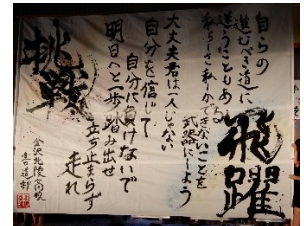 飛躍
自らの
進むべき道に
迷うこともある
私らしさ 私しかできないことを
武器にしよう
大丈夫君は一人じゃない
自分を信じて
自分に負けないで
明日へと一歩踏み出せ
立ち止まらず
走れ
挑戦
金沢北陵高校
書道部